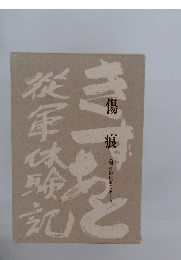 きずあと
傷痕
從軍体験記